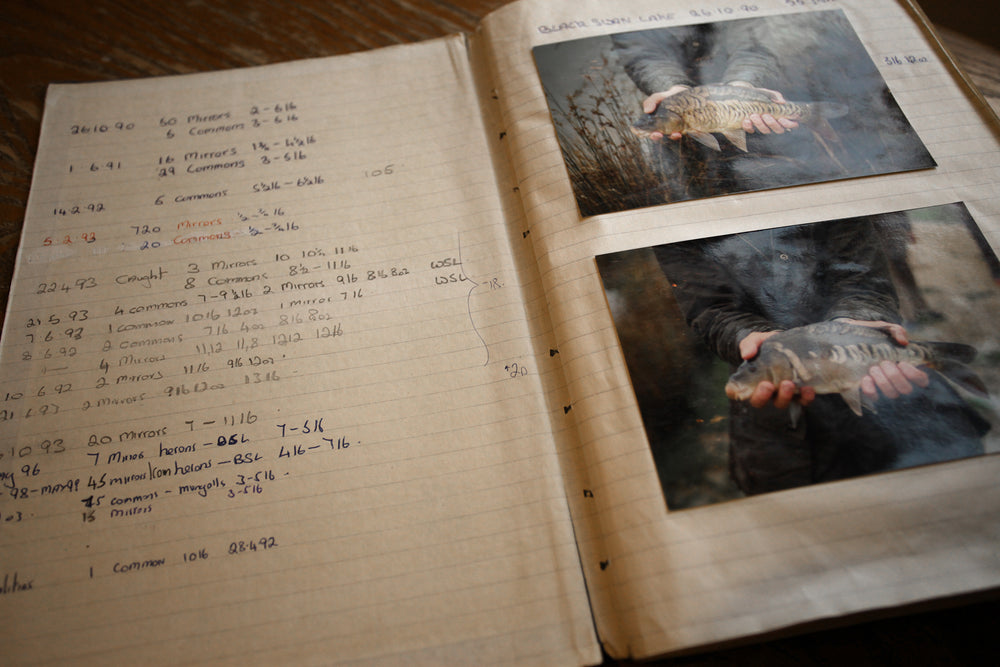 26.10.90 50 Mirrors 2-61b
5 Commons 3-61b
1.6.91 16 Mirrors 1¾-4½lb
29 Commons 3-51b
14.2.92 6 Commons 5½lb-6½lb 105
5.2.93 720 Mirrors ½-¾lb
20 Commons ½-¾lb
22.4.93 Caught 3 Mirrors 10 10¾ 11lb
8 Commons 8½-11lb WSL
21.5.93 4 commons 7-9½lb 2 Mirrors 9lb 8lb 8oz WSL
7.6.93 1 common 10lb 12oz 1 mirror 7lb
8.6.92 2 commons 7lb 4oz 8lb 8oz
4 Mirrors 11,12 11,8 12,12 12lb
10 6.92 2 mirrors 11lb 9lb 12oz
21 6.93 2 Mirrors 9lb 12oz 13lb
10 93 20 mirrors 7-11lb
96 7 herons-BSL 7-51b
98-May99 45 mirrors/ herons-BSL 4lb-7lb
03. 75 commons - 3-5lb
15 mirrors 3-5lb
1 Common 10lb 28.4.92
BLACK SWAN LAKE 26.10.90
3lb 12oz